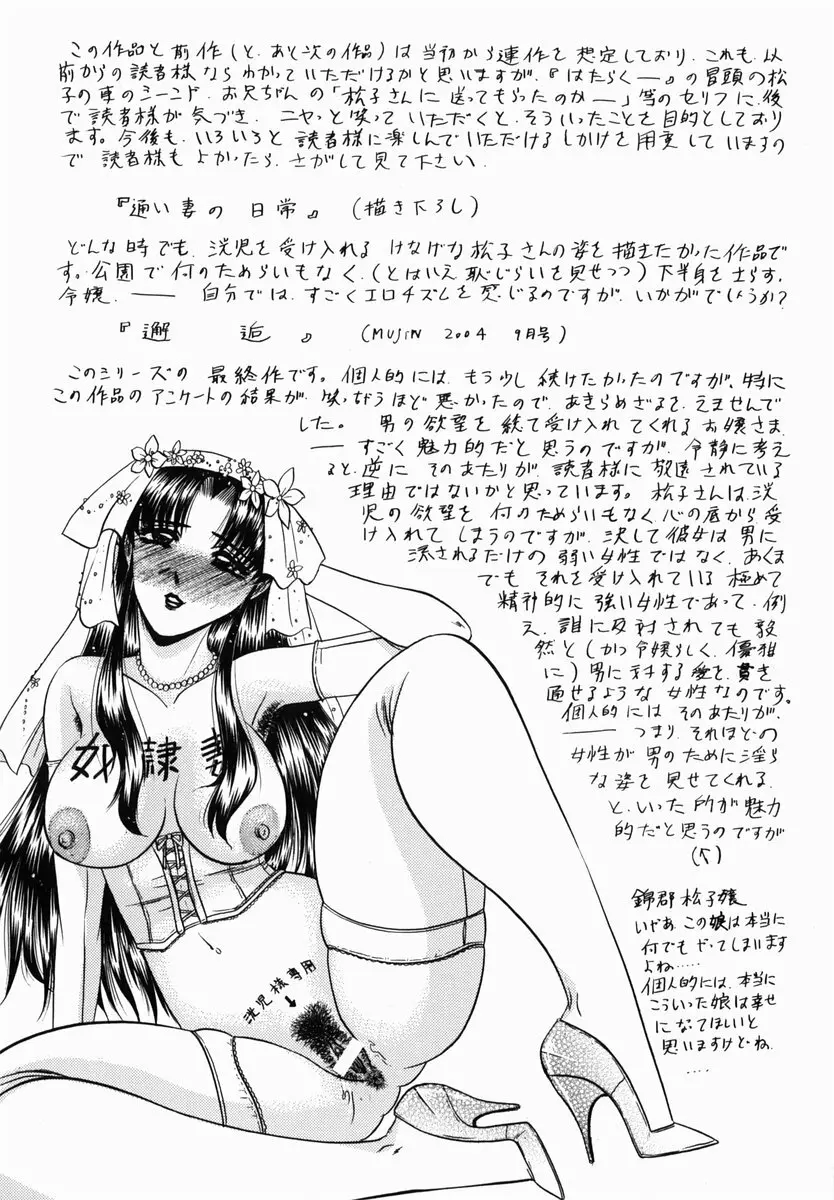 この作品と前作(と、あと次の作品)は当初から連作を想定しており、これも、以
前からの読者様ならわかっていただけるかと思いますが、『はたらく―』の冒頭の松
子の車のシーンや、お兄ちゃんの「松子さんに送ってもらったのか―」等のセリフに、後
で読者様が気づき、ニヤッと笑っていただくと、そういったことを目的としており
ます。今後も、いろいろと読者様に楽しんでいただけるしかけを用意していますの
で読者様もよかったら、さがして見て下さい。
『通い妻の日常』(描き下ろし)
どんな時でも、洸児を受け入れるけなげな松子さんの姿を描きたかった作品で
す。公園で何のためらいもなく、(とはいえ恥じらいを見せつつ)下半身を
令嬢、―― 自分では、すごくエロチズムを感じるのですが、いかがでしょうか?
『邂逅』(MUJIN 2004 9月号)
このシリーズの最終作です。個人的には、もう少し続けたかったのですが、特に
この作品のアンケートの結果が、笑っちゃうほど悪かったので、あきらめざるを、えませんで
した。男の欲望を総て受け入れてくれるお嬢さま、
―― すごく魅力的だと思うのですが、冷静に考え
ると、逆にそのあたりが、読者様に敬遠されている
理由ではないかと思っています。松子さんは、洸
児の欲望を何のためらいもなく、心の底から受
け入れてしまうのですが、決して彼女は男に
流されるだけの弱い女性ではなく、あくま
でもそれを受け入れている極めて
精神的に強い女性であって、例
え、誰に反対されても毅
然と(かつ令嬢らしく、優雅
に)男に対する愛を、貫き
通せるような女性なのです。
個人的にはそのあたりが、
―― つまり、それほどの
女性が男のために淫ら
な姿を見せてくれる、
と、いった所が魅力
的だと思うのですが
奴隷妻
洸児様専用
↓
錦郡松子嬢
いやぁ、この娘は本当に
何でもやってしまいます
よね……
個人的には、本当に
こういった娘は幸せ
になってほしいと
思いますけどね、
……